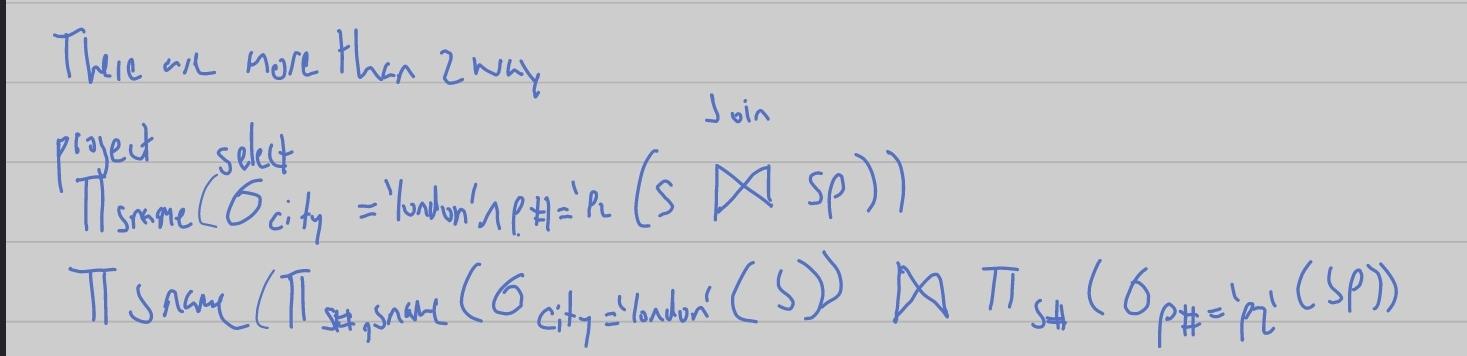 There are more than 2 way
Join
project select
Π sname (σ city = 'london' ∧ p# = 'p2 (S ⋈ SP))
Π Sname (Π s#, sname (σ city = 'london' (S)) ⋈ Π s# (σ p# = 'p2' (SP))